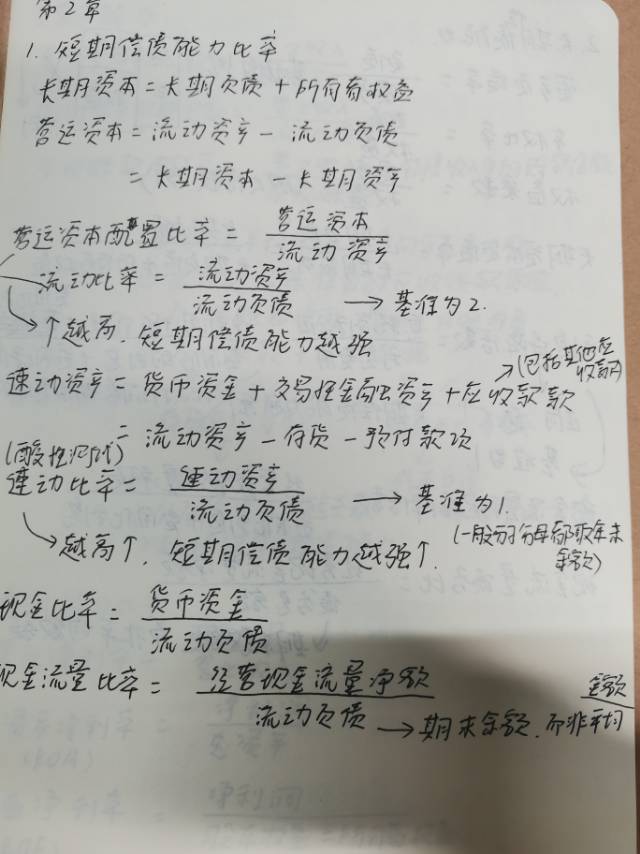 第2章
1. 短期偿债能力比率
长期资本=长期负债+所有者权益
营运资本=流动资产-流动负债
=长期资本-长期资产
营运资本配置比率=营运资本/流动资产
流动比率=流动资产/流动负债 →基准为2.
↑越高.短期偿债能力越强
(包括其他应收款)
速动资产=货币资金+交易性金融资产+应收款款
=流动资产-存货-预付款项
(酸性测试)
速动比率=速动资产/流动负债 →基准为1.
(一般分子分母都取年末余额)
越高↑.短期偿债能力越强↑.
现金比率=货币资金/流动负债
现金流量比率=经营现金流量净额/流动负债 →期末余额.而非平均金额